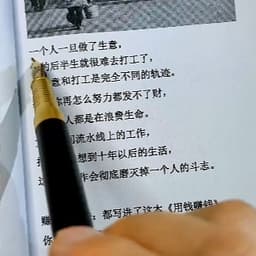 一个人一旦做了生意,
的后半生就很难去打工了,
意和打工是完全不同的轨迹。
你再怎么努力都发不了财,
人都是在浪费生命。
流水线上的工作,
想到十年以后的生活,
作会彻底磨灭掉一个人的斗志。
赚 : 都写进了这本《用钱赚钱》
你